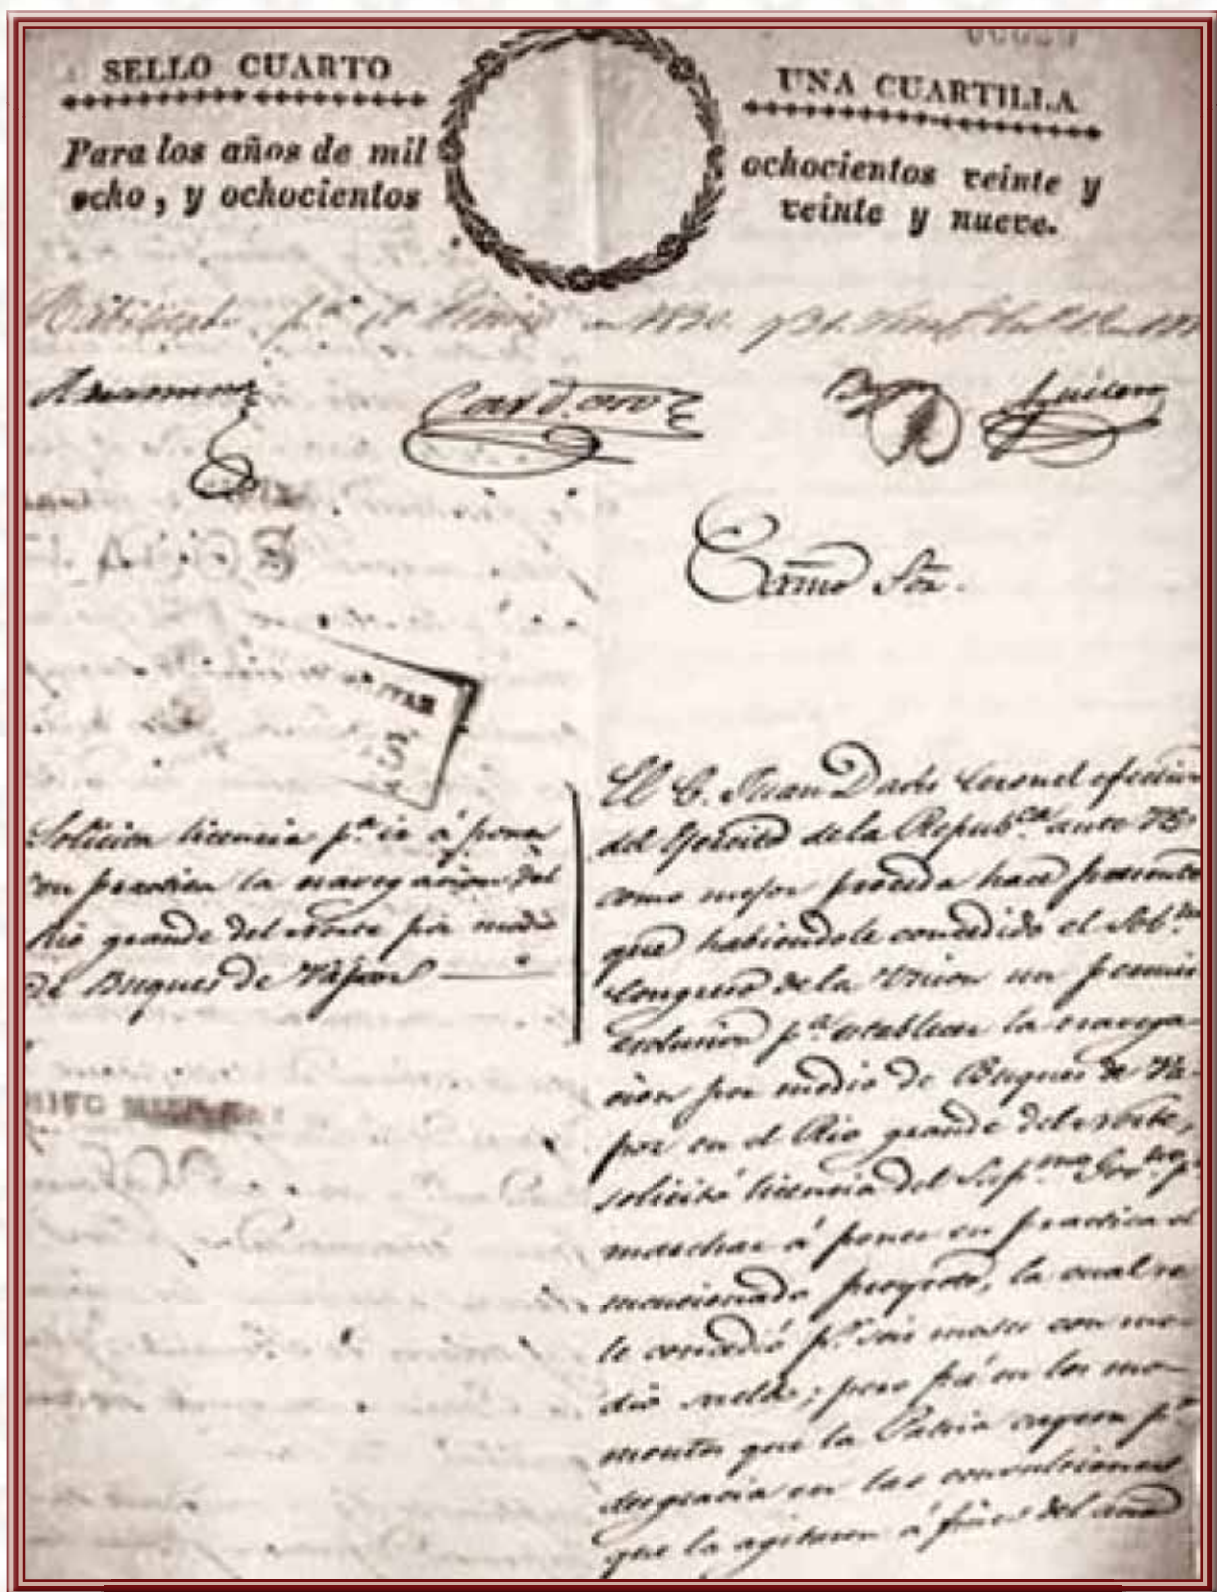 SELLO CUARTO
Para los años de mil
ocho, y ochocientos
UNA CUARTILLA
ochocientos veinte y
veinte y nueve.
Exmo Sor.
Solicita licencia pa. ir á poner
en practica la navegacion del
Rio grande del Norte por medio
de Buques de Vapor
El C. Juan Davis Coronel efectivo
del Ejercito de la Repubca. ante VE
como mejor proceda hace presente
que habiendole concedido el Sobno.
Congreso de la Union un permiso
esclusivo pa. establecer la navega-
cion por medio de Buques de Va-
por en el Rio grande del Norte,
solicitó licencia del Supmo. Gobno. pa.
marchar á poner en practica el
mencionado proyecto, la cual se
le concedió pr. seis meses con me-
dio sueldo; pero fué en los mo-
mentos que la Patria cayera pr.
desgracia en las convulsiones
que la agitaron á fines del año